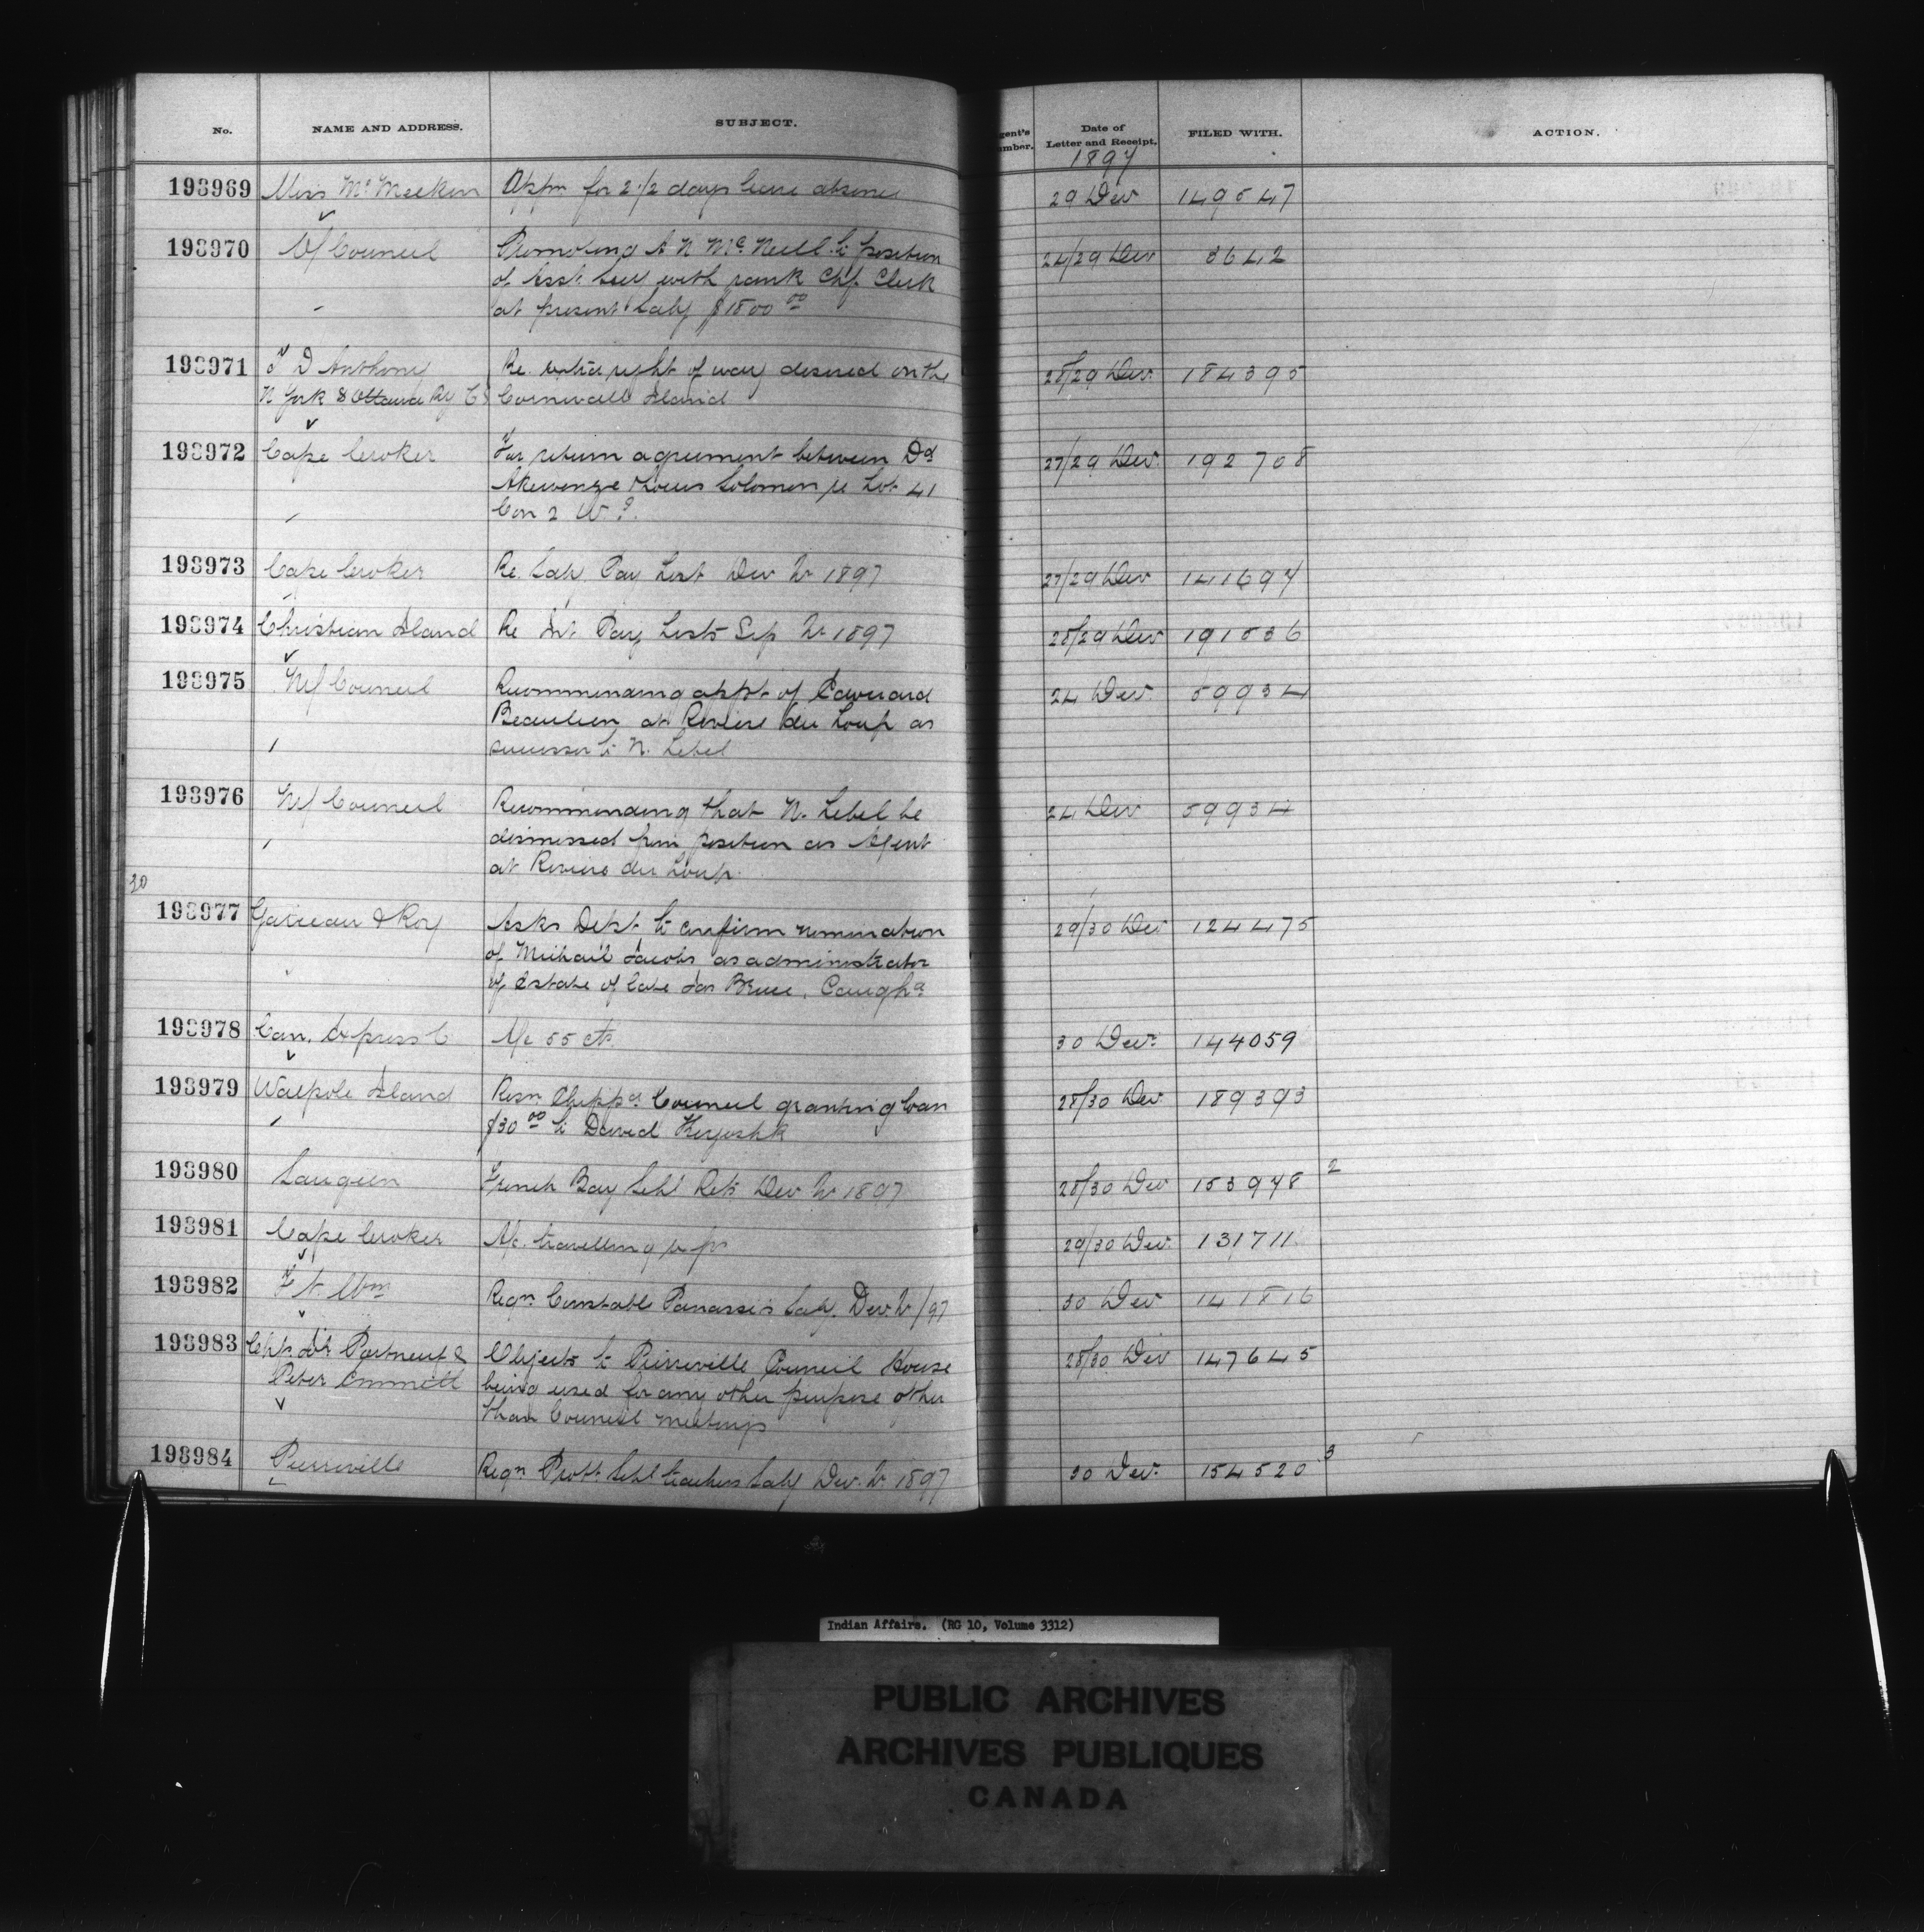 No. NAME AND ADDRESS. SUBJECT. gent's umber. Date of Letter and Receipt. FILED WITH. ACTION.
1897
193969 Miss McMeekin Appn for 2 1/2 days leave absence 29 Dec 149547
193970 O/Council Promoting A N McNeill to position 24/29 Dec 3642
of Asst Secy with rank Chf Clerk
at present Saly $1800 00
193971 D Anthony Re extra right of way desired on the 28/29 Dec. 184395
N York & Ottawa Ry Co Cornwall Island
193972 Cape Croker For return agreement between Dd 27/29 Dec. 192708
Akewenze & Louis Solomon re Lot 41
Con 2 W.
193973 Cape Croker Re. Saly Pay List Dec Qr 1897 27/29 Dec 141694
193974 Christian Island Re Int Pay Lists Sep Qr 1897 28/29 Dec 191536
193975 M/Council Recommending appt of Edouard 24 Dec. 59934
Beaulieu at Riviere du Loup as
successor to N. Lebel
193976 M/Council Recommending that N. Lebel be 24 Dec 59934
dismissed from position as Agent
at Riviere du Loup.
30
193977 & Roy Asks Dept to confirm nomination 29/30 Dec 124475
of Michail Jacobs as administrator
of estate of late Jas Bruce, Caugha
193978 Can. Express Co A/c 55 cts. 30 Dec. 144059
193979 Walpole Island Resn Chippa Council granting loan 28/30 Dec 189393
$30 00 to David Kiyoshk
193980 Saugeen French Bay Schl Rets Dec Qr 1897 28/30 Dec 153948 2
193981 Cape Croker A/c. travelling exps 29/30 Dec. 131711
193982 Ft Wm Reqn Constable Panassi's Saly. Dec. Qr/97 30 Dec 141816
193983 Chf. Portneuf & Objects to Pierreville Council House 28/30 Dec 147645
Peter Emmett being used for any other purpose other
than Council meetings
193984 Pierreville Reqn Prott Schl teachers Saly Dec. Qr. 1897 30 Dec. 154520 3
Indian Affairs. (RG 10, Volume 3312)
PUBLIC ARCHIVES
ARCHIVES PUBLIQUES
CANADA